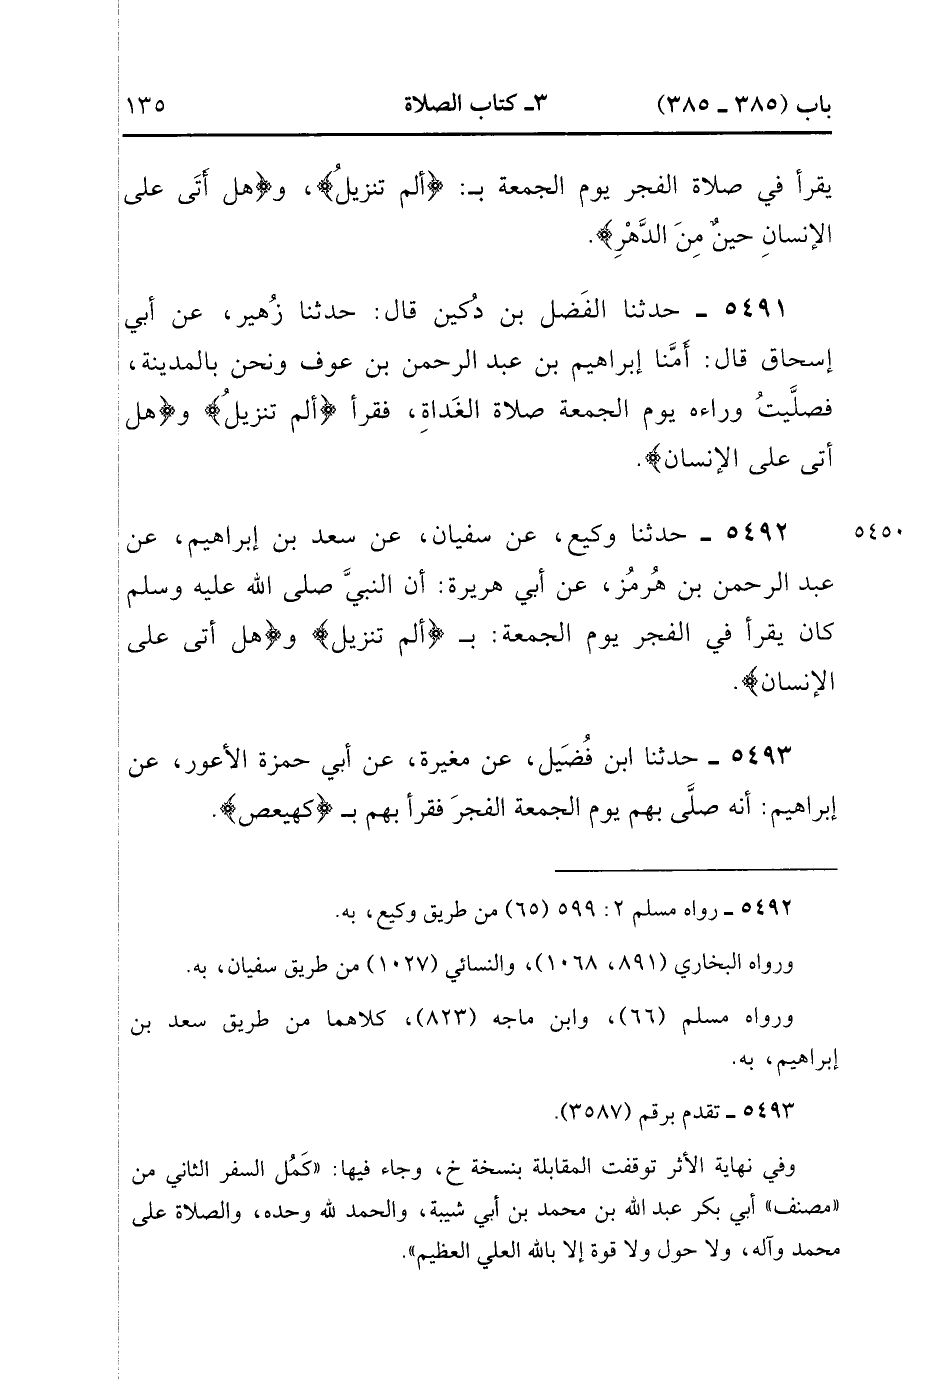 باب (٣٨٥ ـ ٣٨٥) ٣ـ كتاب الصلاة ١٣٥
يقرأ في صلاة الفجر يوم الجمعة بـ: ﴿ألم تنزيلُ﴾، و﴿هل أَتَى على
الإنسانِ حينٌ مِنَ الدَّهْرِ﴾.
٥٤٩١ ـ حدثنا الفَضل بن دُكين قال: حدثنا زُهير، عن أبي
إسحاق قال: أَمَّنا إبراهيم بن عبد الرحمن بن عوف ونحن بالمدينة،
فصلَّيتُ وراءه يوم الجمعة صلاة الغَداةِ، فقرأ ﴿ألم تنزيلُ﴾ و﴿هل
أتى على الإنسان﴾.
٥٤٥٠ ٥٤٩٢ ـ حدثنا وكيع، عن سفيان، عن سعد بن إبراهيم، عن
عبد الرحمن بن هُرمُز، عن أبي هريرة: أن النبيَّ صلى الله عليه وسلم
كان يقرأ في الفجر يوم الجمعة: بـ ﴿ألم تنزيل﴾ و﴿هل أتى على
الإنسان﴾.
٥٤٩٣ ـ حدثنا ابن فُضَيل، عن مغيرة، عن أبي حمزة الأعور، عن
إبراهيم: أنه صلَّى بهم يوم الجمعة الفجرَ فقرأ بهم بـ ﴿كهيعص﴾.
٥٤٩٢ ـ رواه مسلم ٢: ٥٩٩ (٦٥) من طريق وكيع، به.
ورواه البخاري (٨٩١، ١٠٦٨)، والنسائي (١٠٢٧) من طريق سفيان، به.
ورواه مسلم (٦٦)، وابن ماجه (٨٢٣)، كلاهما من طريق سعد بن
إبراهيم، به.
٥٤٩٣ ـ تقدم برقم (٣٥٨٧).
وفي نهاية الأثر توقفت المقابلة بنسخة خ، وجاء فيها: «كَمُل السفر الثاني من
«مصنف» أبي بكر عبد الله بن محمد بن أبي شيبة، والحمد لله وحده، والصلاة على
محمد وآله، ولا حول ولا قوة إلا بالله العلي العظيم».